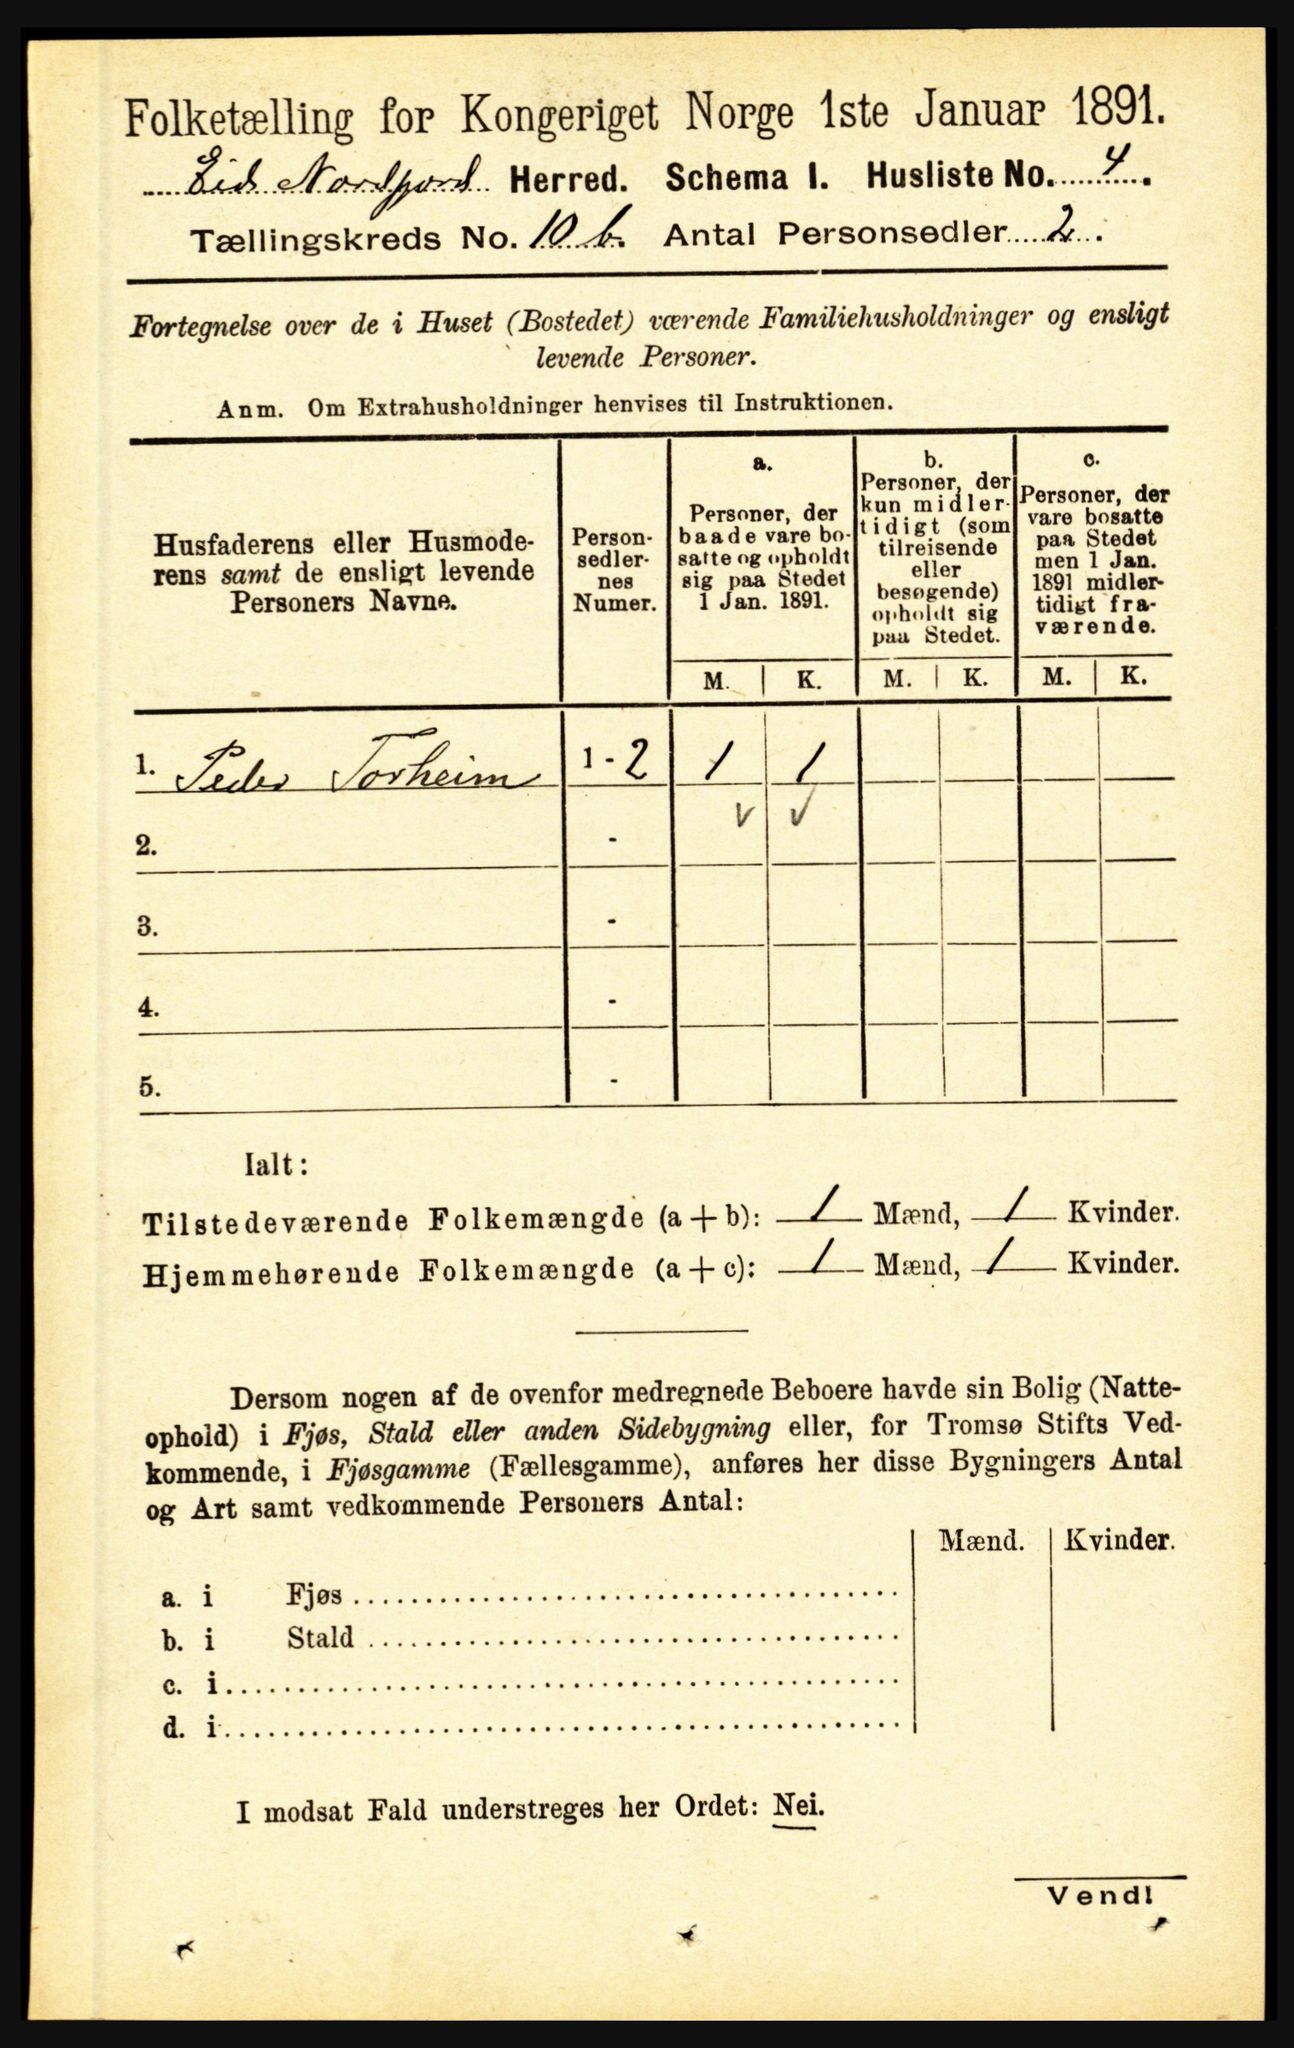 Folketælling for Kongeriget Norge 1ste Januar 1891.
Eid Nordfjord Herred. Schema I. Husliste No. 4.
Tællingskreds No. 10 b. Antal Personsedler 2.
Fortegnelse over de i Huset (Bostedet) værende Familiehusholdninger og ensligt
levende Personer.
Anm. Om Extrahusholdninger henvises til Instruktionen.
Husfaderens eller Husmode-
rens samt de ensligt levende
Personers Navne.
Person-
sedler-
nes
Numer.
a.
Personer, der
baade vare bo-
satte og opholdt
sig paa Stedet
1 Jan. 1891.
b.
Personer, der
kun midler-
tidigt (som
tilreisende
eller
besøgende)
opholdt sig
paa Stedet.
c.
Personer, der
vare bosatte
paa Stedet
men 1 Jan.
1891 midler-
tidigt fra-
værende.
M. K. M. K. M. K.
1. Peder Torheim 1 - 2 1 1
2. -
3. -
4. -
5. -
Ialt:
Tilstedeværende Folkemængde (a + b): 1 Mænd, 1 Kvinder.
Hjemmehørende Folkemængde (a + c): 1 Mænd, 1 Kvinder.
Dersom nogen af de ovenfor medregnede Beboere havde sin Bolig (Natte-
ophold) i Fjøs, Stald eller anden Sidebygning eller, for Tromsø Stifts Ved-
kommende, i Fjøsgamme (Fællesgamme), anføres her disse Bygningers Antal
og Art samt vedkommende Personers Antal:
Mænd. Kvinder.
a. i Fjøs
b. i Stald
c. i
d. i
I modsat Fald understreges her Ordet: Nei.
Vend!